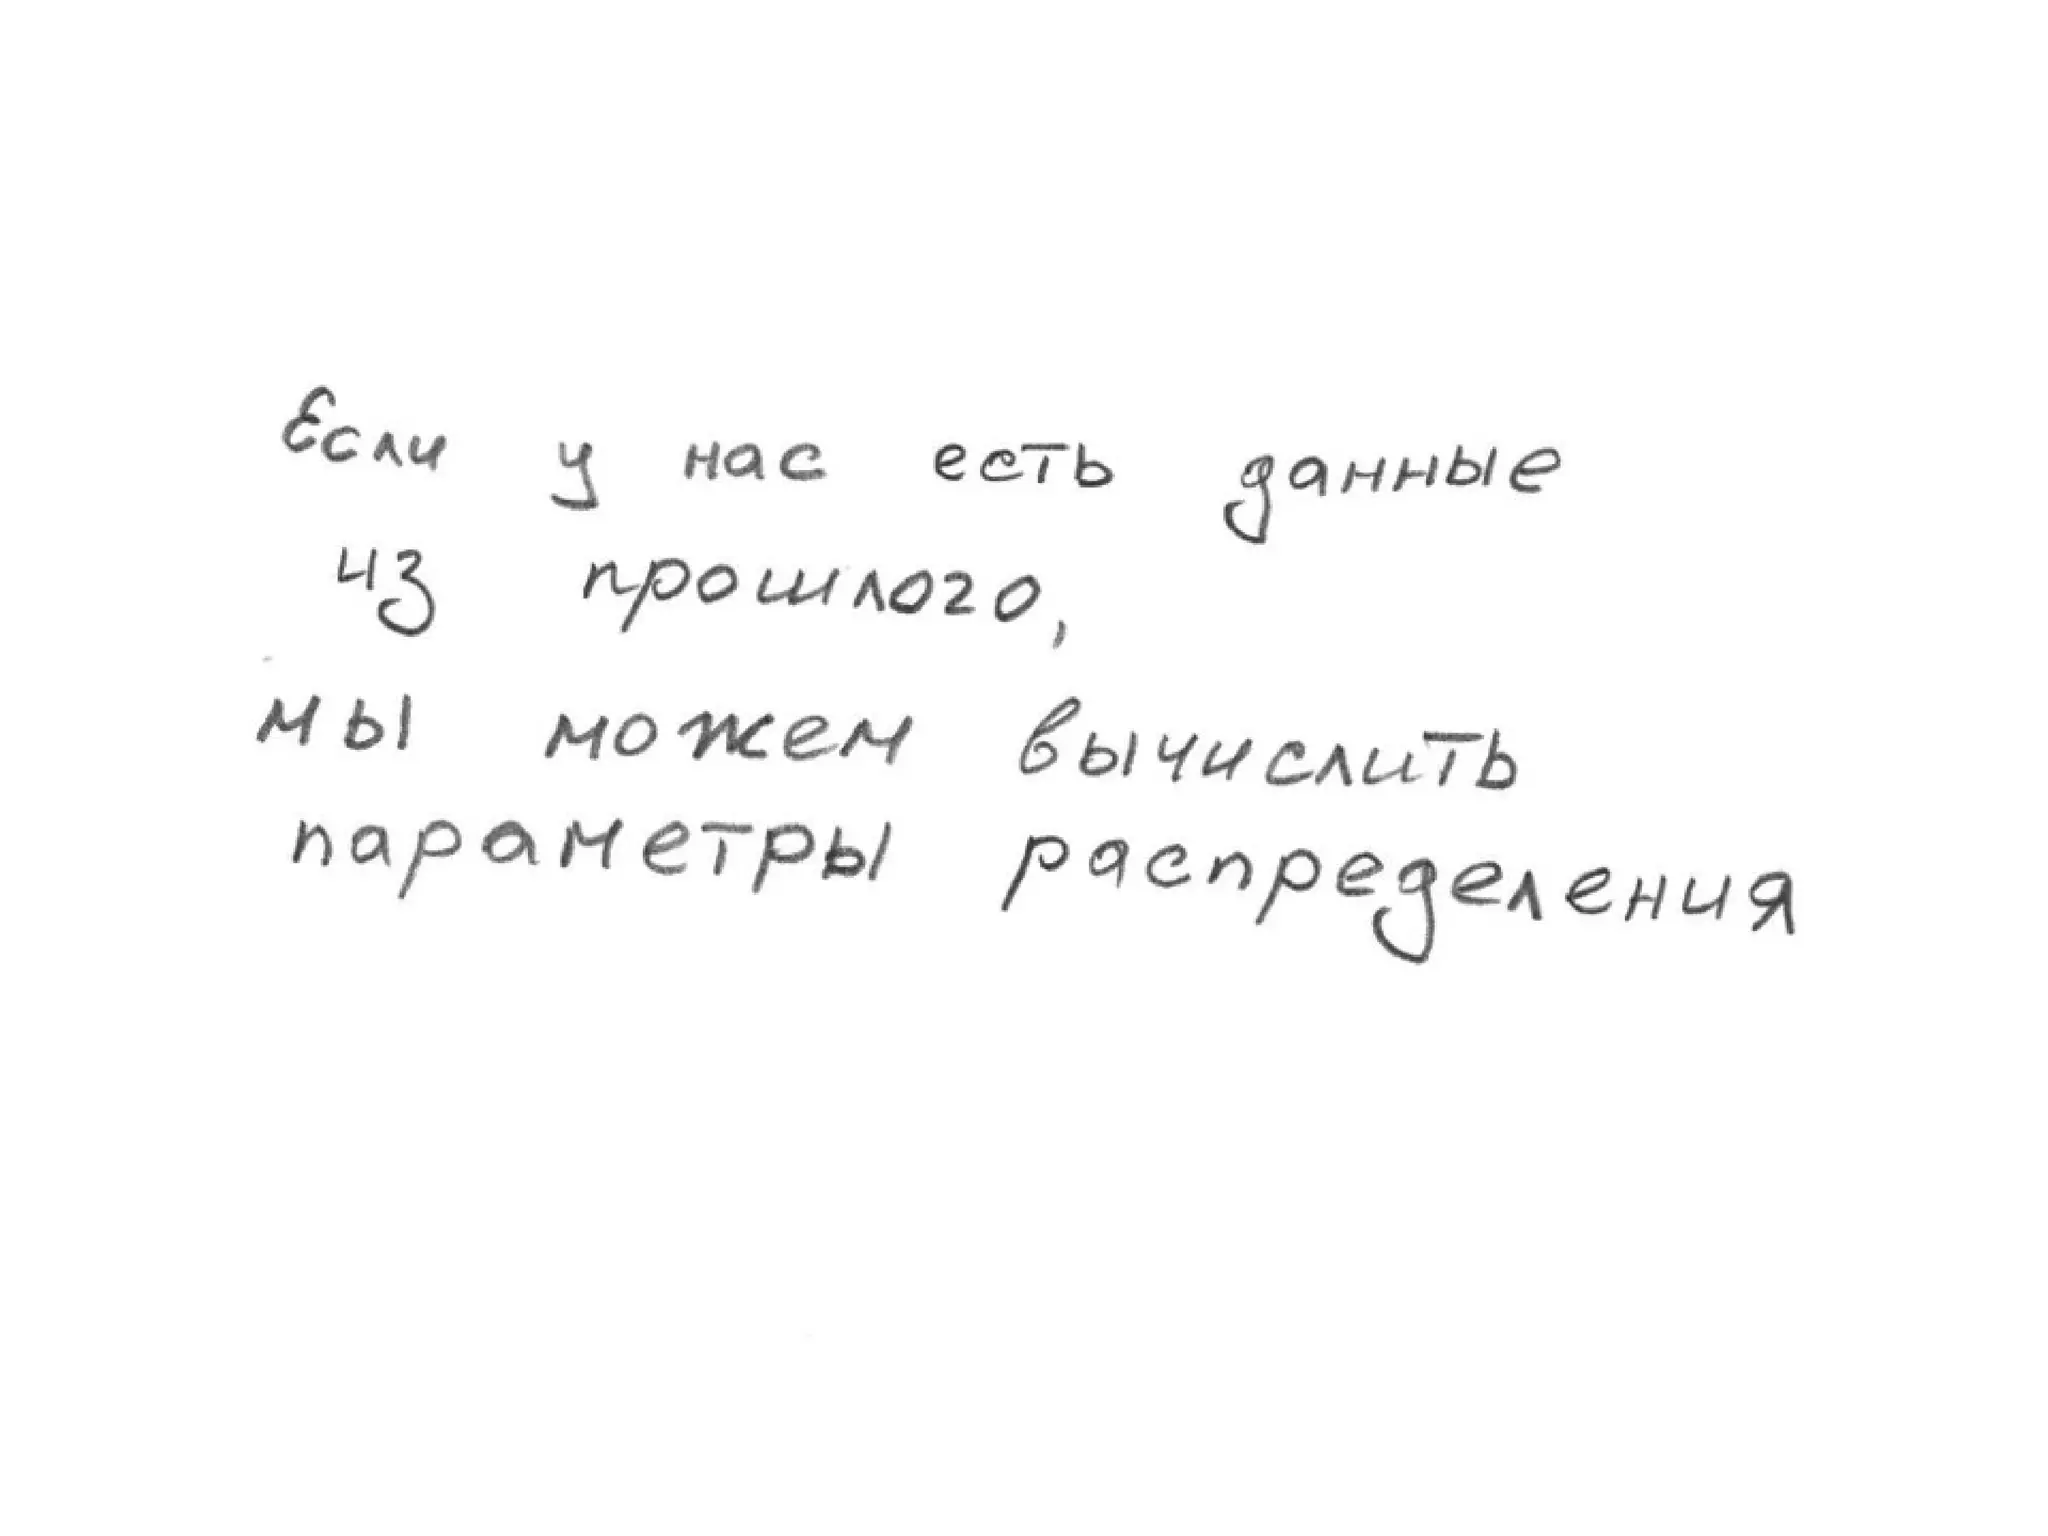 Если у нас есть данные
из прошлого,
мы можем вычислить
параметры распределения